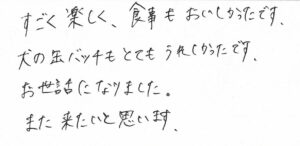 すごく楽しく、食事もおいしかったです、
犬の缶バッチもとてもうれしかったです、
お世話になりました。
また来たいと思います、